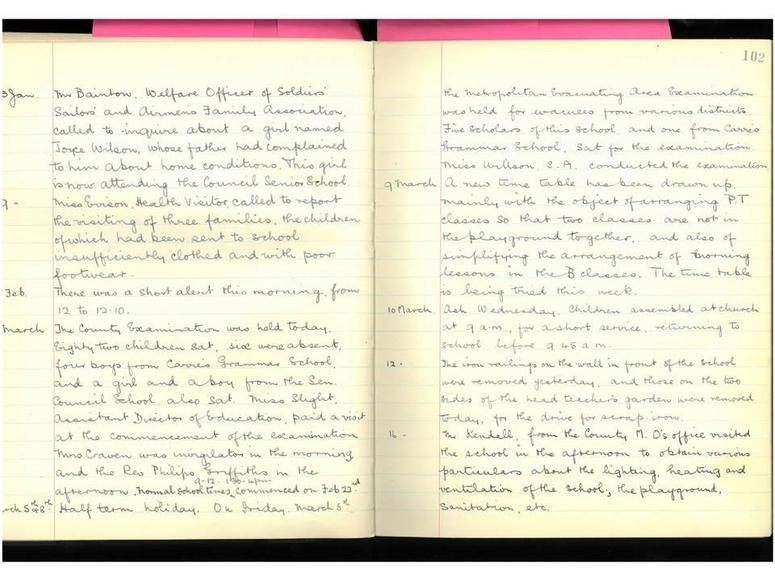 3 Jan. Mr Bainton, Welfare Officer of Soldiers'
Sailors' and Airmen's Family Association,
called to inquire about a girl named
Joyce Wilson, whose father had complained
to him about home conditions. This girl
is now attending the Council Senior School.
9 - Miss Evison, Health Visitor, called to report
the visiting of three families, the children
of which had been sent to school
insufficiently clothed and with poor
footwear.
Feb. There was a short alert this morning, from
12 to 12.10.
March The County Examination was held today.
Eighty two children sat, six were absent,
four boys from Carre's Grammar School,
and a girl and a boy from the Sen.
Council School also sat. Miss Slight,
Assistant Director of Education, paid a visit
at the commencement of the examination
Mrs Craven was invigilator in the morning
and the Rev Philips Griffiths in the
9-12. 1.30-4pm
afternoon. Normal school times, commenced on Feb 22nd
rch 5th & 8th Half term holiday. On Friday. March 5th
102
the Metropolitan Evacuating Area Examination
was held for evacuees from various districts.
Five Scholars of this School, and one from Carre's
Grammar School, sat for the examination.
Miss Willson. E.A. conducted the examination
9 March A new time table has been drawn up,
mainly with the object of arranging P.T
classes so that two classes are not in
the playground together, and also of
simplifying the arrangement of
lessons in the B classes. The time table
is being tried this week.
10 March. Ash Wednesday. Children assembled at church
at 9 a.m., for a short service, returning to
school before 9.45 a.m.
12 - The iron railings on the wall in front of the school
were removed yesterday, and those on the two
sides of the head teacher's garden were removed
today, for the drive for scrap iron.
16 - Mr Kendall, from the County M.O's office visited
the school in the afternoon to obtain various
particulars about the lighting, heating and
ventilation of the school, the playground,
sanitation, etc.